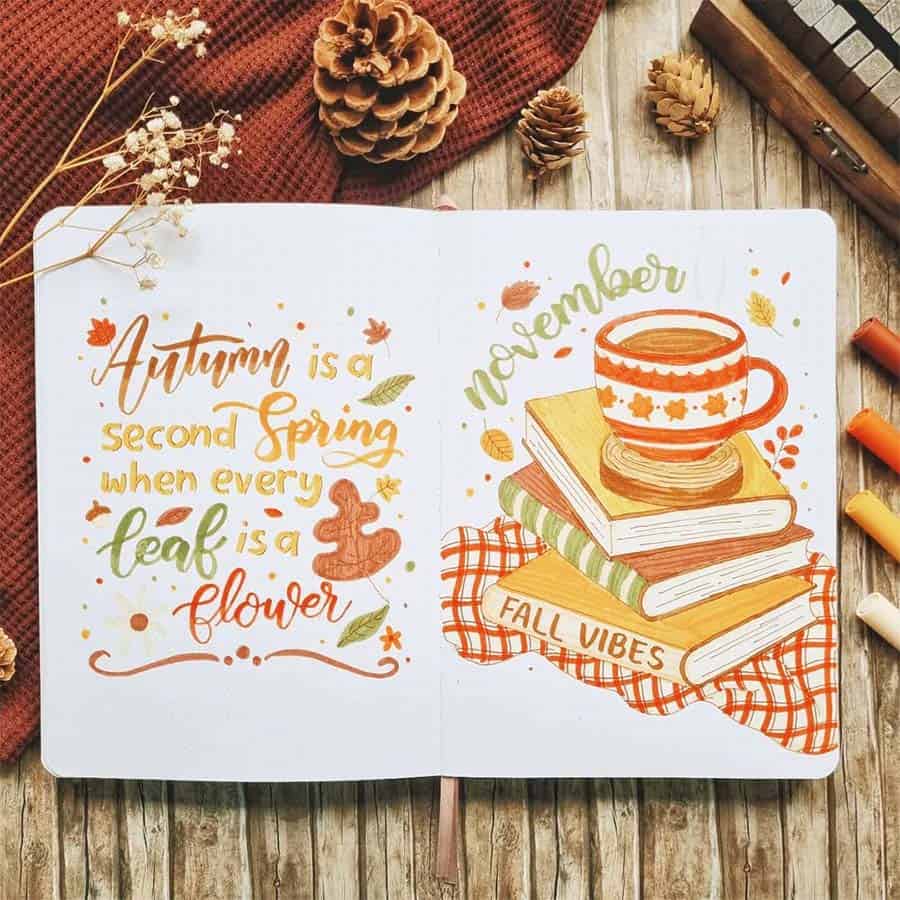 Autumn is a
second Spring
when every
leaf is a
flower
november
FALL VIBES